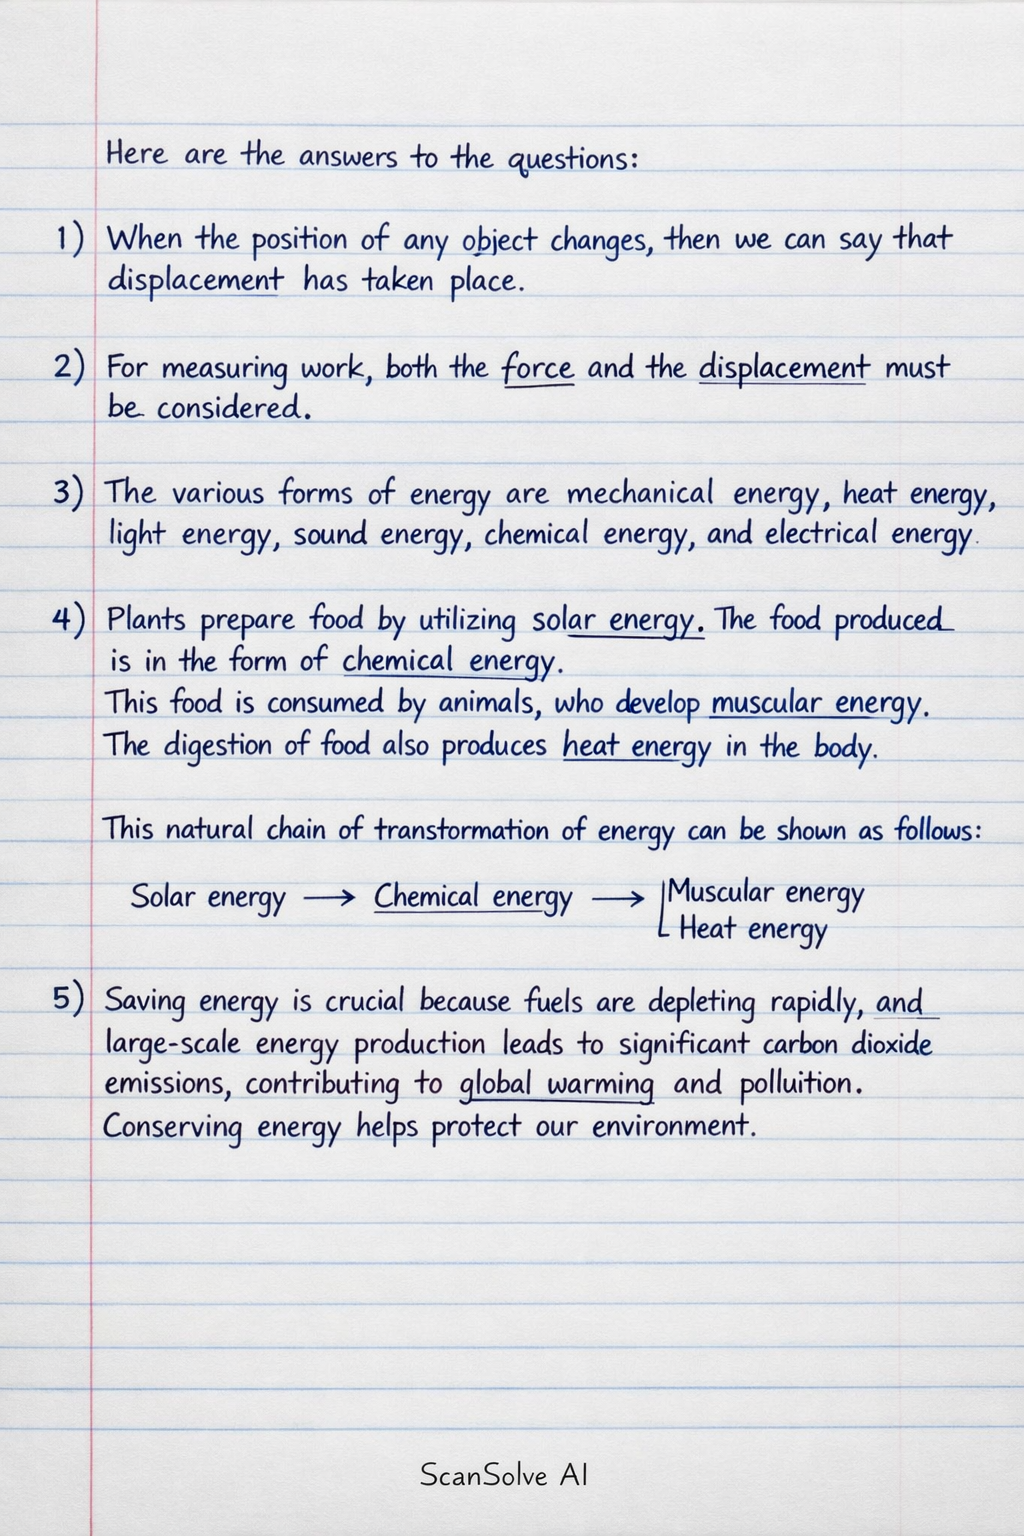 Here are the answers to the questions:
1) When the position of any object changes, then we can say that
displacement has taken place.
2) For measuring work, both the force and the displacement must
be considered.
3) The various forms of energy are mechanical energy, heat energy,
light energy, sound energy, chemical energy, and electrical energy.
4) Plants prepare food by utilizing solar energy. The food produced
is in the form of chemical energy.
This food is consumed by animals, who develop muscular energy.
The digestion of food also produces heat energy in the body.
This natural chain of transtormation of energy can be shown as follows:
Solar energy → Chemical energy → Muscular energy
Heat energy
5) Saving energy is crucial because fuels are depleting rapidly, and
large-scale energy production leads to significant carbon dioxide
emissions, contributing to global warming and polluition.
Conserving energy helps protect our environment.
ScanSolve AI